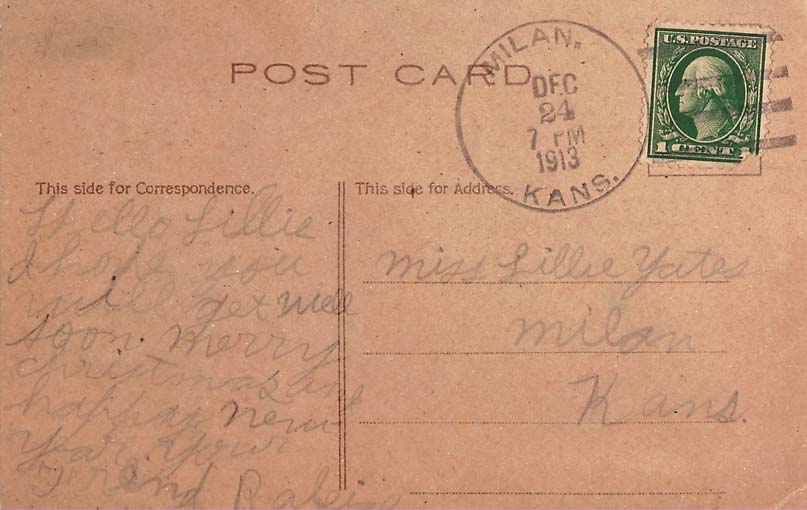 POST CARD
MILAN.
DEC
24
7 PM
1913
KANS.
U.S. POSTAGE
1 CENT 1
This side for Correspondence.
Hello Lillie
I hope you
will get well
soon. Merry
christmas and
happy new
year. Your
Friend
This side for Address.
Miss Lillie Yates
Milan
Kans.